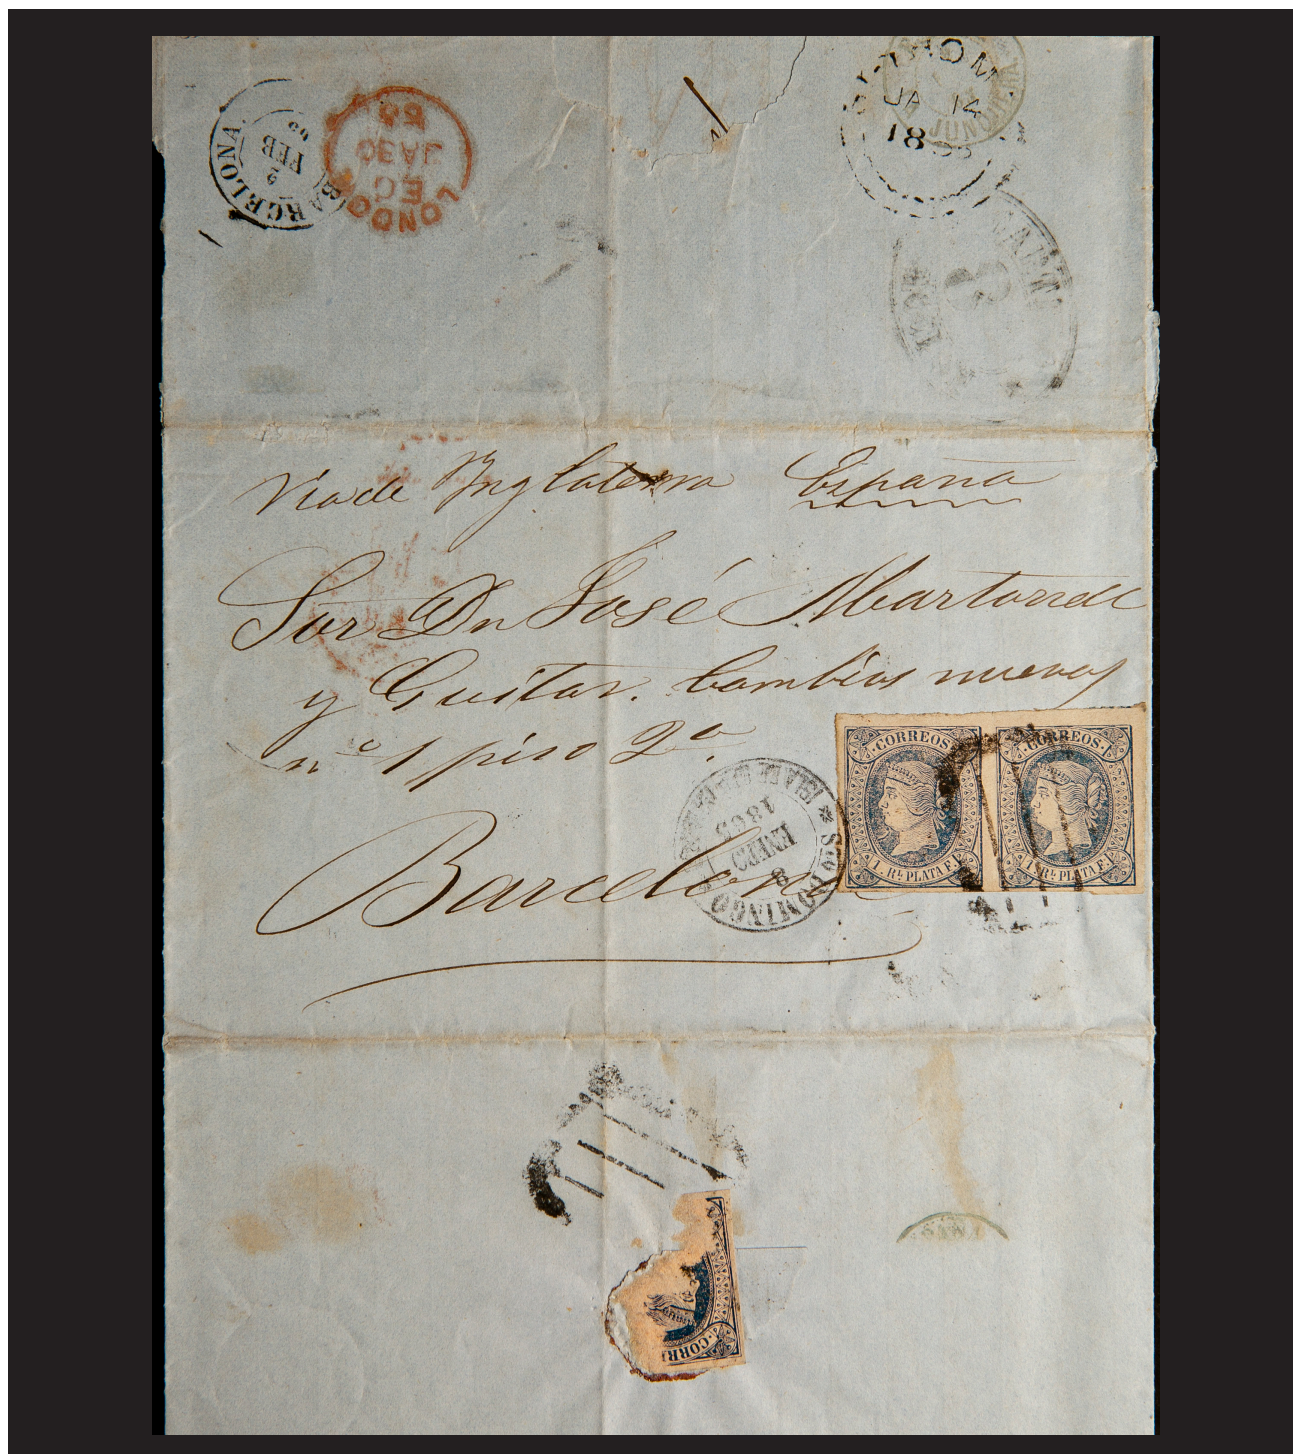 BARCELONA
2
FEB
65
LONDON
EC
JA30
65
JA 14
18
JUNQUERA
Via de Inglaterra España
Sor Dn José Martorell
y Guitar. Cambios nuevos
nº 1 piso 2º
Barcelona
STO DOMINGO
8
ENERO
1865
1·CORREOS·1
1 RL PLATA F. 1
1·CORREOS·1
1 RL PLATA F. 1